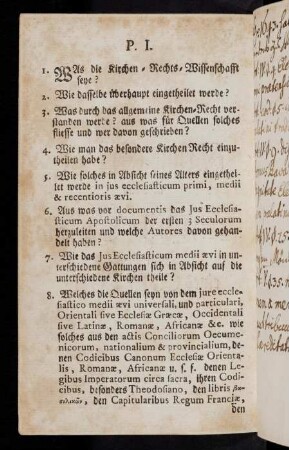 P. I.
1. WAs die Kirchen-Rechts-Wissenschafft
seye?
2. Wie dasselbe überhaupt eingetheilet werde?
3. Was durch das allgemeine Kirchen-Recht ver-
standen werde? aus was für Quellen solches
fliesse und wer davon geschrieben?
4. Wie man das besondere Kirchen Recht einzu-
theilen habe?
5. Wie solches in Absicht seines Alters eingethei-
let werde in jus ecclesiasticum primi, medii
& recentioris ævi.
6. Aus was vor documentis das Jus Ecclesia-
sticum Apostolicum der ersten 3 Seculorum
herzuleiten und welche Autores davon gehan-
delt haben?
7. Wie das Jus Ecclesiasticum medii ævi in un-
terschiedene Gattungen sich in Absicht auf die
unterschiedene Kirchen theile?
8. Welches die Quellen seyn von dem jure eccle-
siastico medii ævi universali, und particulari,
Orientali sive Ecclesiæ Græcæ, Occidentali
sive Latinæ, Romanæ, Africanæ &c. wie
solches aus den actis Conciliorum Oecume-
nicorum, nationalium & provincialium, de-
nen Codicibus Canonum Ecclesiæ Orienta-
lis, Romanæ, Africanæ u. s. f. denen Le-
gibus Imperatorum circa sacra, ihren Codi-
cibus, besonders Theodosiano, den libris βα-
σιλικῶν, den Capitularibus Regum Franciæ,
den